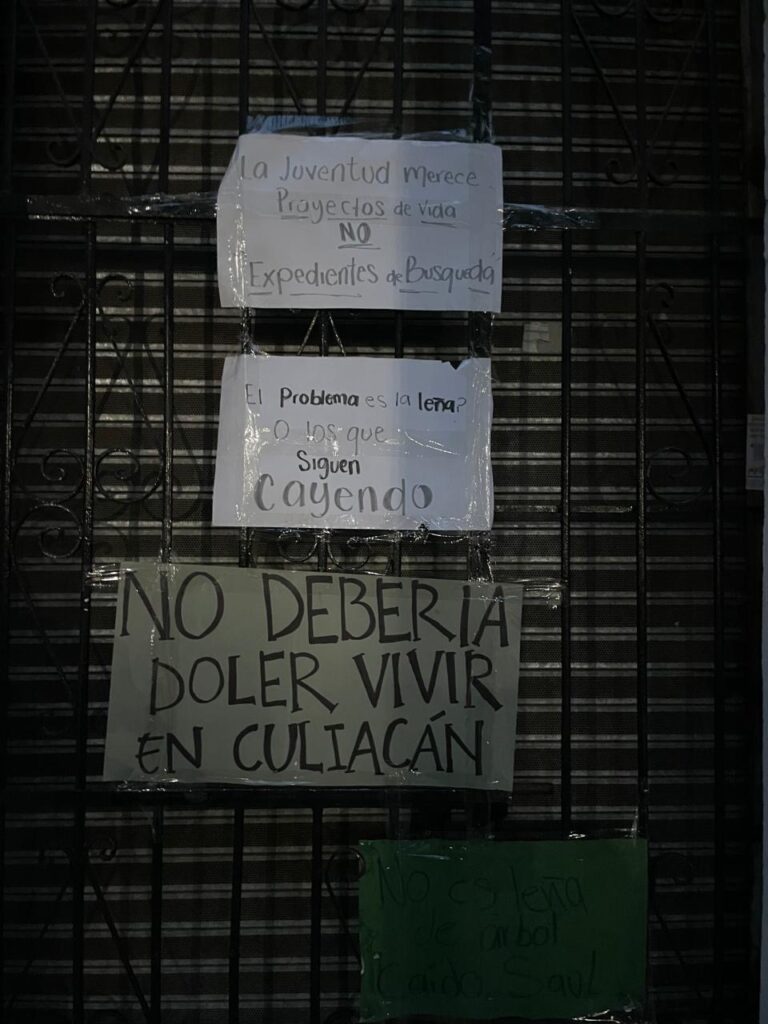 La Juventud merece
Proyectos de vida
NO
Expedientes de Busquedá
El Problema es la leña?
O los que
Siguen
Cayendo
NO DEBERIA
DOLER VIVIR
EN CULIACÁN
No es leña
de arbol
Caído Saul